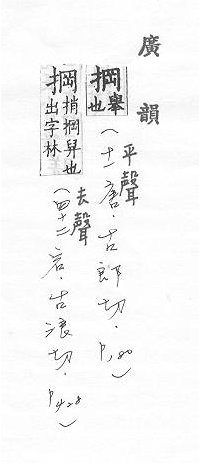 廣韻
掆舉也
平聲
(十一唐·古郎切·P.180)
掆捎掆舁也出字林
去聲
(四十二宕·古浪切·P.428)